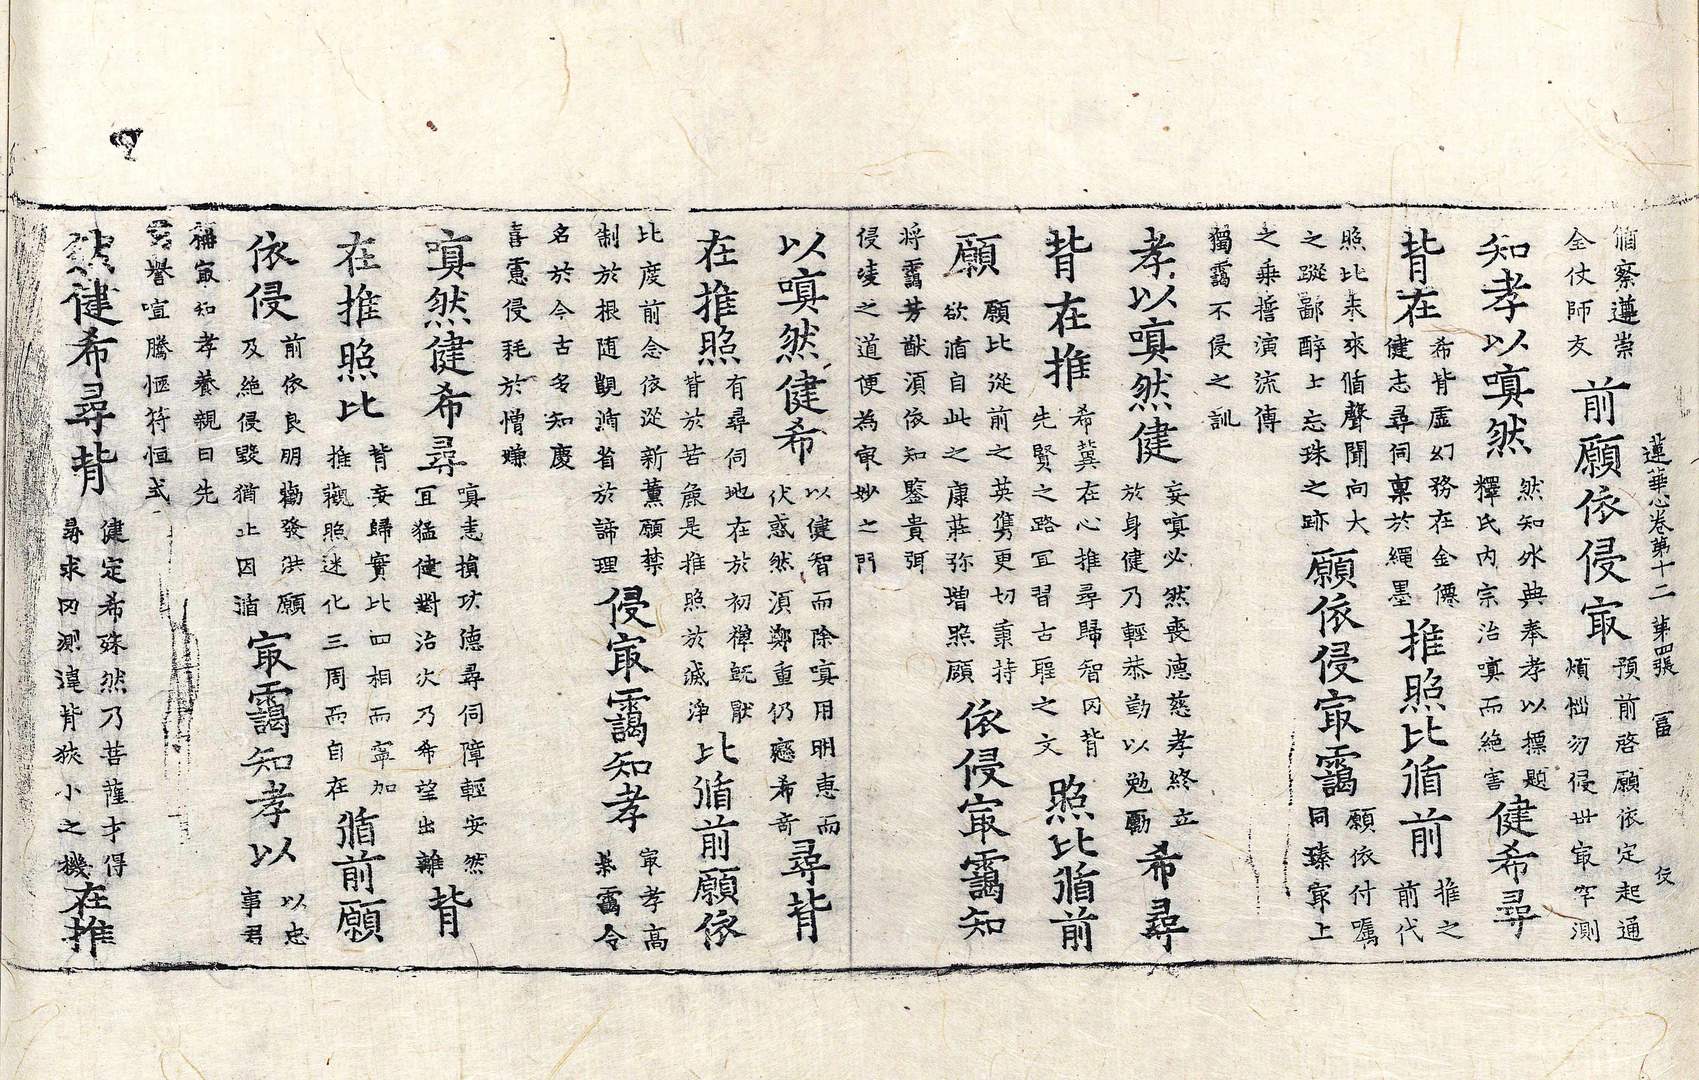 蓮華心卷第十二 第四張 富 伎
循察遵崇
全仗師友
前願依侵㝡
預前啓願依定起通
煩惱勿侵世㝡罕測
知孝以嗔然
然知外典奉孝以標題
釋氏內宗治嗔而絕害
健希尋
背在
希背虛幻務在金僊
健志尋伺稟於繩墨
推照比循前
推之
前代
照比未來循聲聞向大
之蹤鄙醉上忘珠之跡
願依侵㝡靄
願依付囑
同臻㝡上
之乘誓演流傳
獨靄不侵之訓
孝以嗔然健
妄嗔必然喪德慈孝終立
於身健乃輕恭勤以勉勵
希尋
背在推
希冀在心推尋歸智因背
先賢之路宜習古聖之文
照比循前
願
願比從前之英雋更切秉持
欲循自此之康莊弥增照顧
依侵㝡靄知
將靄芳猷須依知鑒貴弭
侵凌之道便為㝡妙之門
以嗔然健希
以健智而除嗔用明惠而
伏惑然須鄭重仍懸希奇
尋背
在推照
有尋伺地在於初禪既厭
背於苦麁是推照於滅淨
比循前願依
比度前念依從新薰願禁
制於根随觀循省於諦理
侵㝡靄知孝
㝡孝高
業靄令
名於今古多知慶
喜慝侵耗於憎嫌
嗔然健希尋
嗔恚損功德尋伺障輕安然
宜猛健對治次乃希望出離
背
在推照比
背妄歸實比四相而寧加
推觀照迷化三周而自在
循前願
依侵
前依良朋勸發洪願
及絕侵毀猶止因循
㝡靄知孝以
以忠
事君
稱㝡知孝養親曰先
譽喧騰愜符恒式
然健希尋背
健定希殊然乃菩薩才得
尋求罔測違背狹小之機
在推